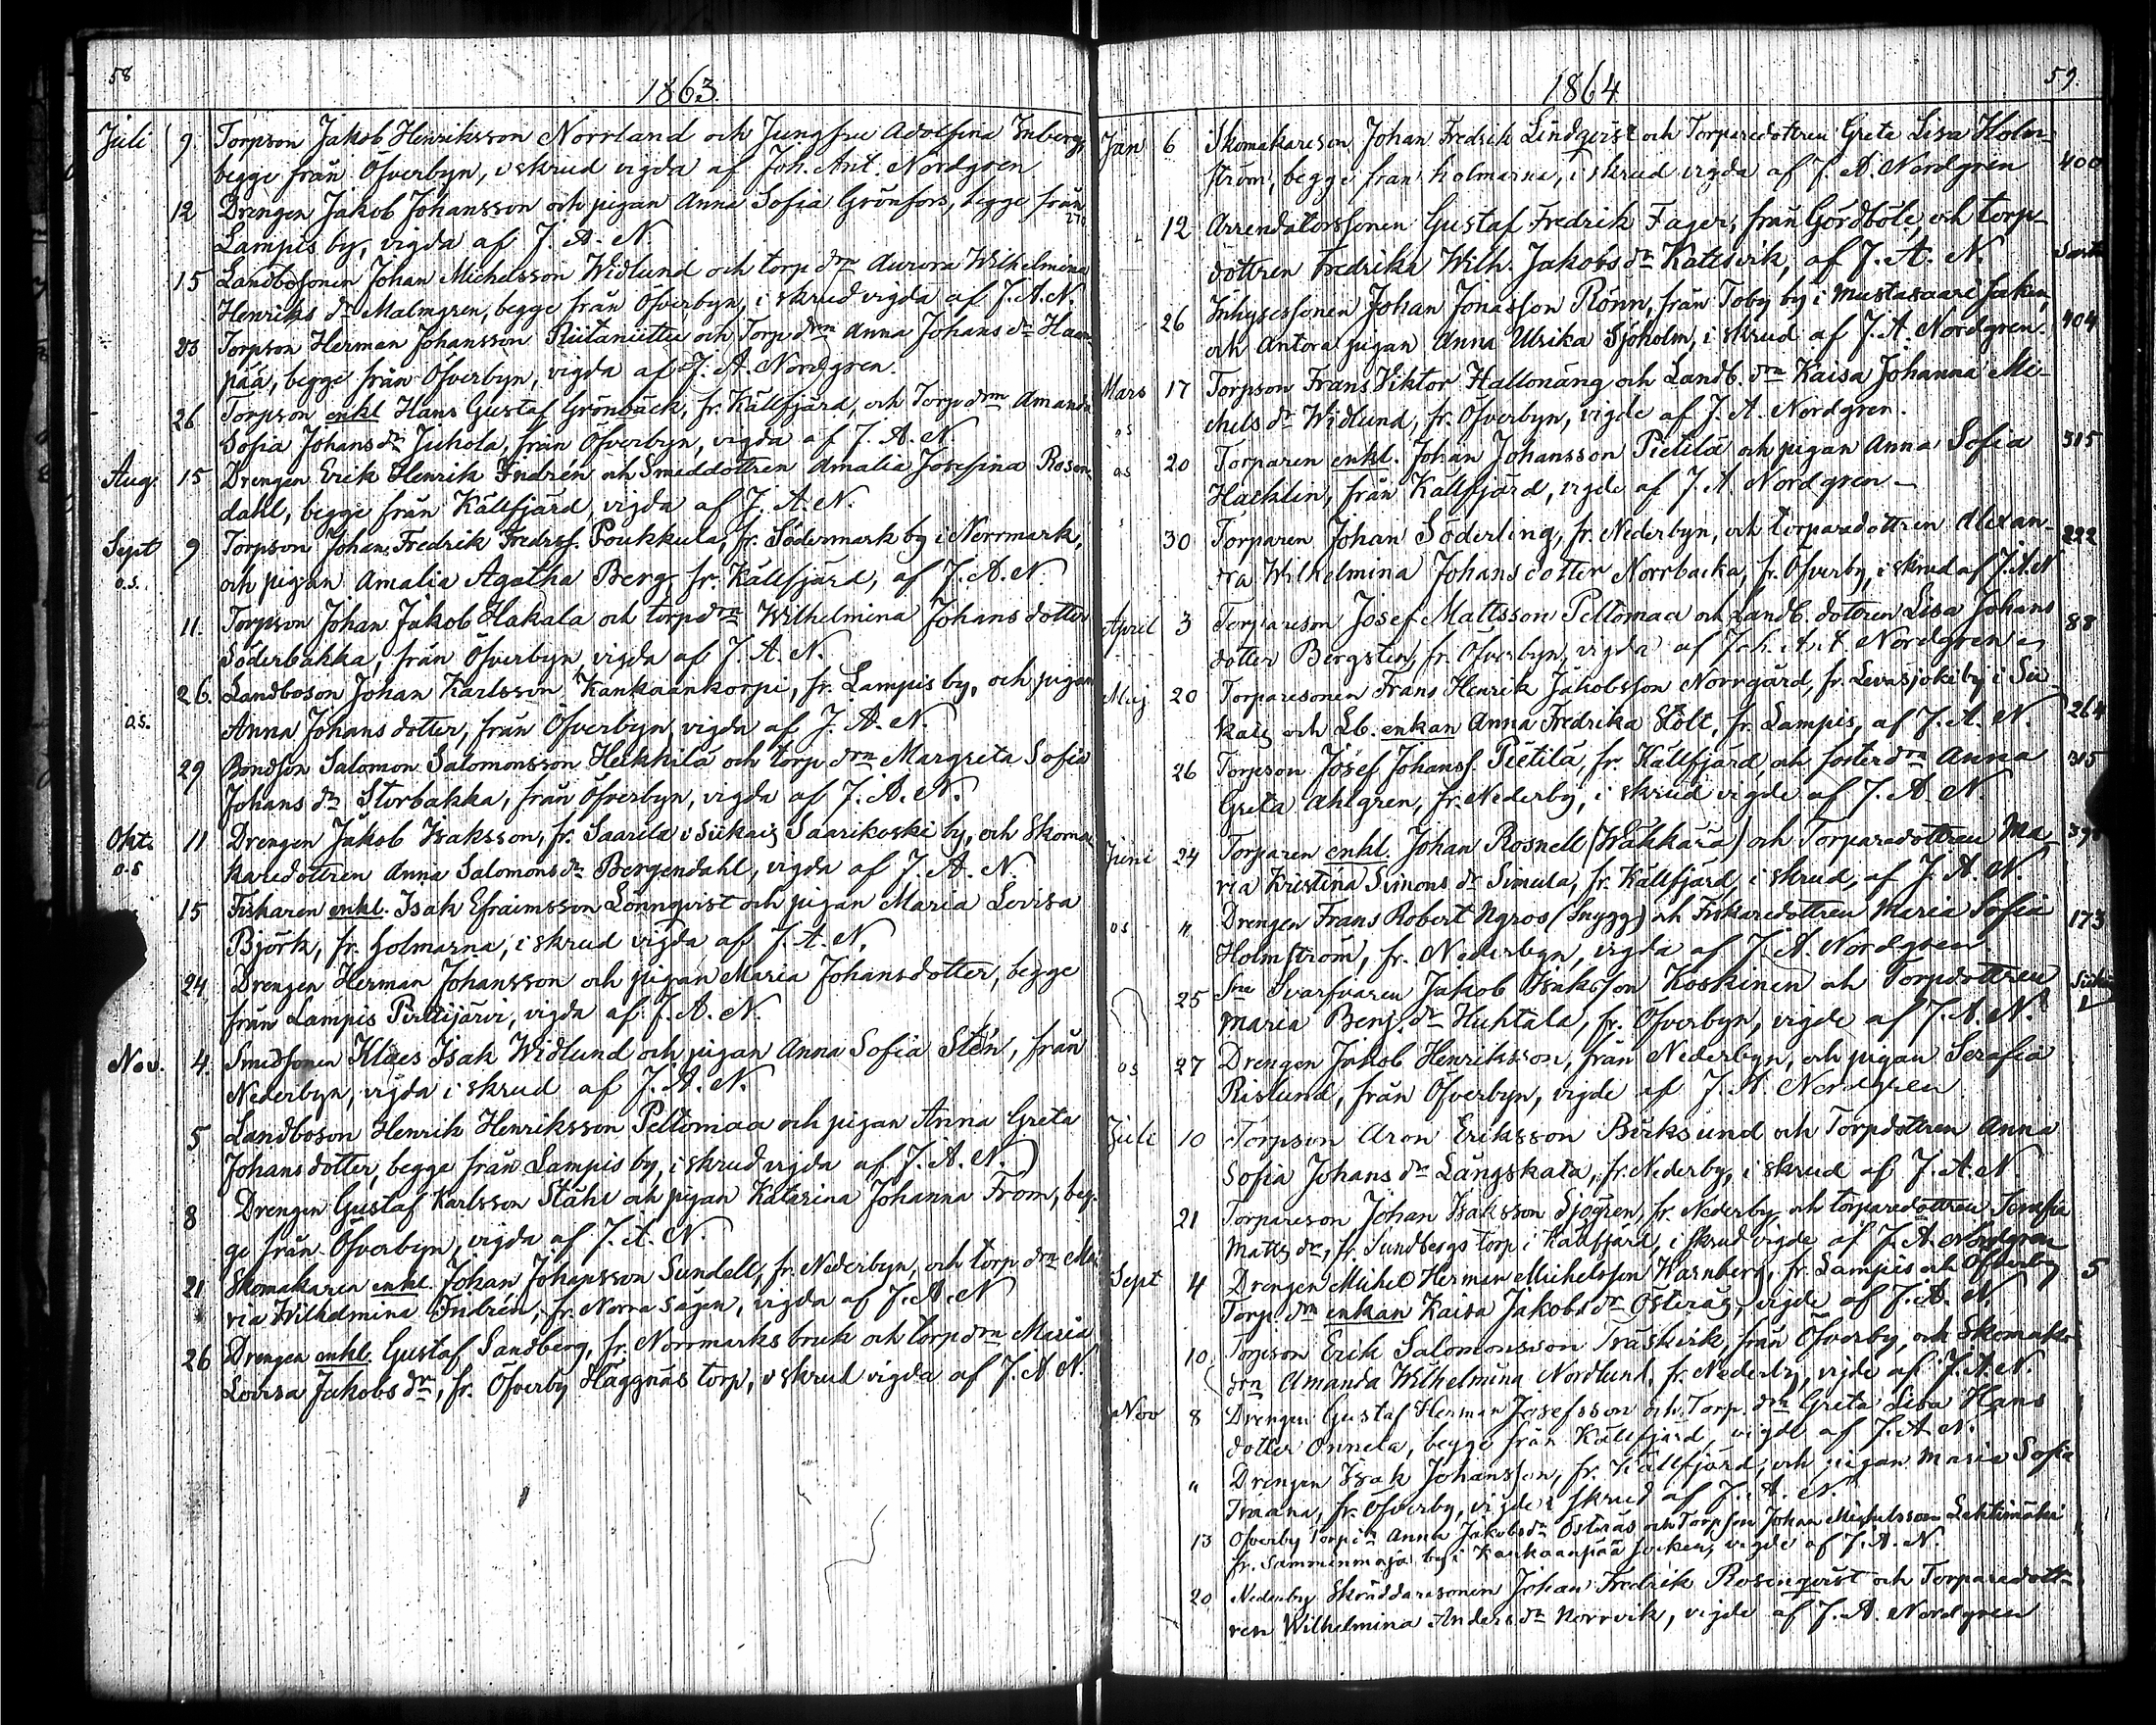 58
1863.
Juli 9. Torpson Jakob Henriksson Norrland och Jungfru Adolfina Inberg,
begge från Öfverbyn, i skrud vigda af Joh. Ant. Nordgren
12 Drengen Jakob Johansson och pigan Anna Sofia Grönfors, begge från
Lampis by, vigda af J. A. N.
15 Landbosonen Johan Michelsson Widlund och torp drn Aurora Wilhelmina
Henriks dr Malmgren, begge från Öfverbyn, i skrud vigda af J. A. N.
23 Torpson Herman Johansson och Torp drn Anna Johans dr Haan-
pää, begge från Öfverbyn, vigda af J. A. Nordgren.
26 Torpson enkl Hans Gustaf Grönbäck, fr. Källfjärd, och Torp drn Amanda
Sofia Johans dr Juhola, från Öfverbyn, vigda af J. A. N.
Aug. 15 Drengen Erik Henrik Indrén och Smeddottren Amalia Josefina Rosen-
dahl, begge från Källfjärd, vigda af J. A. N.
Sept 9 Torpson Johan Fredrik Fredrsf. Poukkula, fr. Södermark by i Norrmark,
o.s. och pigan Amalia Agatha Berg, fr. Källfjärd, af J. A. N.
11. Torpson Johan Jakob Hakala och torp drn Wilhelmina Johans dotter
Söderbakka, från Öfverbyn, vigda af J. A. N.
26. Landboson Johan Karlsson Kankaankorpi, fr. Lampis by, och pigan
o.s. Anna Johans dotter, från Öfverbyn, vigda af J. A. N.
29 Bondson Salomon Salomonsson Heikkilä och torp drn Margreta Sofia
Johans dr Storbakka, från Öfverbyn, vigda af J. A. N.
Okt. 11 Drengen Jakob Isaksson, fr. Saarila i Siikais Saarikoski by, och Skoma-
o.s karedottren Anna Salomons dr Bergendahl, vigda af J. A. N.
15 Fiskaren enkl. Isak Efraimsson Lönnqvist och pigan Maria Lovisa
Björk, fr. holmarna, i skrud vigda af J. A. N.
24 Drengen Herman Johansson och pigan Maria Johansdotter, begge
från Lampis Pirttijärvi, vigda af J. A. N.
Nov. 4. Smedsonen Klaes Isak Widlund och pigan Anna Sofia Stén, från
Nederbyn, vigda i skrud af J. A. N.
5 Landboson Henrik Henriksson Peltomaa och pigan Anna Greta
Johans dotter, begge från Lampis by, i skrud vigda af J. A. N.
8 Drengen Gustaf Karlsson Ståhl och pigan Katarina Johanna From, beg-
ge från Öfverbyn, vigda af J. A. N.
21 Skomakaren enkl. Johan Johansson Sundell, fr. Nederbyn, och torp drn Ma-
ria Wilhelmina Indrén, fr. Norra sågen, vigda af J. A. N
26 Drengen enkl. Gustaf Sandberg, fr. Norrmarks bruk och torp drn Maria
Lovisa Jakobs dr, fr. Öfverby Häggnäs torp, i skrud vigda af J. A. N.
59.
1864
Jan 6 Skomakareson Johan Fredrik Lindqvist och Torparedottren Greta Lisa Holm-
ström, begge från holmarna, i skrud vigda af J. A. Nordgren 400
12 Arrendatorssonen Gustaf Fredrik Fager, från Gördböle, och torp
dottren Fredrika Wilh. Jakobs dr Kattsvik, af J. A. N.
26 Inhysessonen Johan Jonasson Rönn, från Toby by i Mustasaari socken,
och Antora pigan Anna Ulrika Sjöholm, i skrud af J. A. Nordgren. 404
Mars 17 Torpson Frans Viktor Hallonäng och Landb. drn Kaisa Johanna Mi-
os chels dr Widlund, fr. Öfverbyn, vigde af J. A. Nordgren.
os 20 Torparen enkl. Johan Johansson Pietilä och pigan Anna Sofia 315
Hacklin, från Källfjärd, vigde af J. A. Nordgren
30 Torparen Johan Söderling, fr. Nederbyn, och torparedottren Alexan- 222
dra Wilhelmina Johans dotter Norrbacka, fr. Öfverby, i skrud af J. A. N
April 3 Torpareson Josef Mattsson Peltomaa och Landb. dottren Lisa Johans 88
dotter Bergsten, fr. Öfverbyn, vigda af Joh. Ant Nordgren
Maj 20 Torparesonen Frans Henrik Jakobsson Norrgård, fr. Levasjoki by i Sii
kais och Lb. enkan Anna Fredrika Stolt, fr. Lampis, af J. A. N. 264
26 Torpson Josef Johansf. Pietilä, fr. Källfjärd, och foster drn Anna 315
Greta Ahlgren, fr. Nederby, i skrud vigde af J. A. N.
Juni 24 Torparen enkl. Johan Rosnell (Wäkkärä) och Torparedottren Ma-
ria Kristina Simons dr Simula, fr. Källfjärd, i skrud, af J. A. N.
os " Drengen Frans Robert Ngros (Snygg) och Fiskaredottren Maria Sofia 173
Holmström, fr. Nederbyn, vigda af J. A. Nordgren.
25 Sne Svarfvaren Jakob Isaksson Koskinen och Torpdottren
Maria Benj. dr Huhtala, fr. Öfverbyn, vigde af J. A. N.
os 27 Drengen Jakob Henriksson, från Nederbyn, och pigan Serafia
Rislund, från Öfverbyn, vigde af J. A. Nordgren
Juli 10 Torpson Aron Eriksson Birksund och Torpdottren Anna
Sofia Johans dr Långskata, fr. Nederby, i skrud af J. A. N
21 Torpareson Johan Isaksson Sjögren, fr. Nederby, och torparedottren Serafia
Matts dr, fr. Sundbergs torp i Källfjärd, i skrud vigde af J. A. Nordgren
Sept 4 Drengen Michel Herman Michelsson Warnberg, fr. Lampis och Öfverby 5
Torp. drn enkan Kaisa Jakobs dr Österäs, vigde af J. A. N.
10 Torpson Erik Salomonsson Träskvik, från Öfverby, och Skomak-
drn Amanda Wilhelmina Nordlund, fr. Nederby, vigde af J. A. N.
Nov 8 Drengen Gustaf Herman Josefsson och Torp. drn Greta Lisa Hans
dotter Onnela, begge från Källfjärd, vigde af J. A. N.
" Drengen Isak Johansson, fr. Källfjärd, och pigan Maria Sofia
fr. Öfverby, vigde i skrud af J. A. N.
13 Öfverby Anna Jakobs dr Österäs och Torpson Johan Michelsson Lehtimäki
fr. Samminmaja by i Kankaanpää socken, vigde af J. A. N.
20 Nederby Skräddaresonen Johan Fredrik Rosenqvist och Torparedott-
ren Wilhelmina Anders dr Norrvik, vigde af J. A. Nordgren